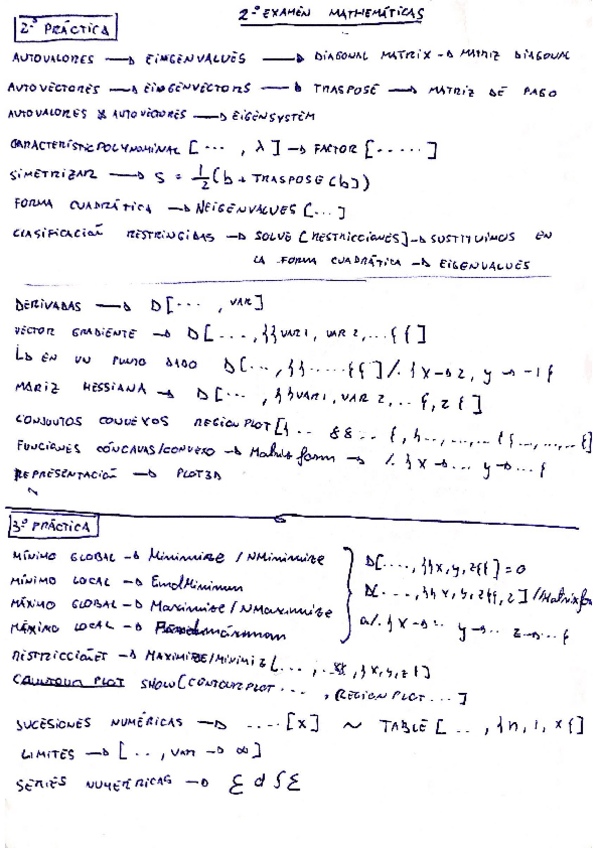 2º EXAMEN MATHEMÁTICAS
2ª PRÁCTICA
AUTOVALORES → EINGENVALUES → DIAGONAL MATRIX → MATRIZ DIAGONAL
AUTOVECTORES → EINGENVECTORS → TRASPOSE → MATRIZ DE PASO
AUTOVALORES Y AUTOVECTORES → EIGENSYSTEM
CARACTERISTICPOLYNOMINAL [ ... , λ ] → FACTOR [ ..... ]
SIMETRIZAR → S = 1/2 (b + TRASPOSE (b))
FORMA CUADRÁTICA → NEIGENVALUES [...]
CLASIFICACIÓN RESTRINGIDAS → SOLVE [RESTRICCIONES] → SUSTITUIMOS EN
LA FORMA CUADRÁTICA → EIGENVALUES
DERIVADAS → D[ ... , VAR]
VECTOR GRADIENTE → D[ ... , {{VAR1, VAR2, ... }}]
↳ EN UN PUNTO DADO D[ ... , {{ ..... }}] /. {x → 2, y → -1}
MARIZ HESSIANA → D[ ... , {{VAR1, VAR 2, .. }, 2}]
CONJUNTOS CONVEXOS REGIONPLOT[{ ... && .. }, {..., ..., ...}, {..., ..., ...}]
FUNCIONES CÓNCAVAS/CONVEXO → Matrix form → /. {x → ... y → ... }
REPRESENTACIÓN → PLOT3D
3ª PRÁCTICA
MÍNIMO GLOBAL → Minimize / NMinimize
D[ ...., {{x, y, z}}] = 0
MÍNIMO LOCAL → FindMinimum
D[ ... , {{x, y, z}}, 2] //Matrixfo
MÁXIMO GLOBAL → Maximize / NMaximize
a/. {x → ... y → ... z → ... }
MÁXIMO LOCAL →
RISTRICCIONES → MAXIMIZE/MINIMIZ[ ... , .. &&, {x, y, z}]
CONTOUR PLOT SHOW[CONTOURPLOT ... , REGION PLOT ...]
SUCESIONES NUMÉRICAS → .... [x] ~ TABLE [ .. , {n, 1, x}]
LIMITES → [ .. , VAR → ∞]
SERIES NUMÉRICAS →